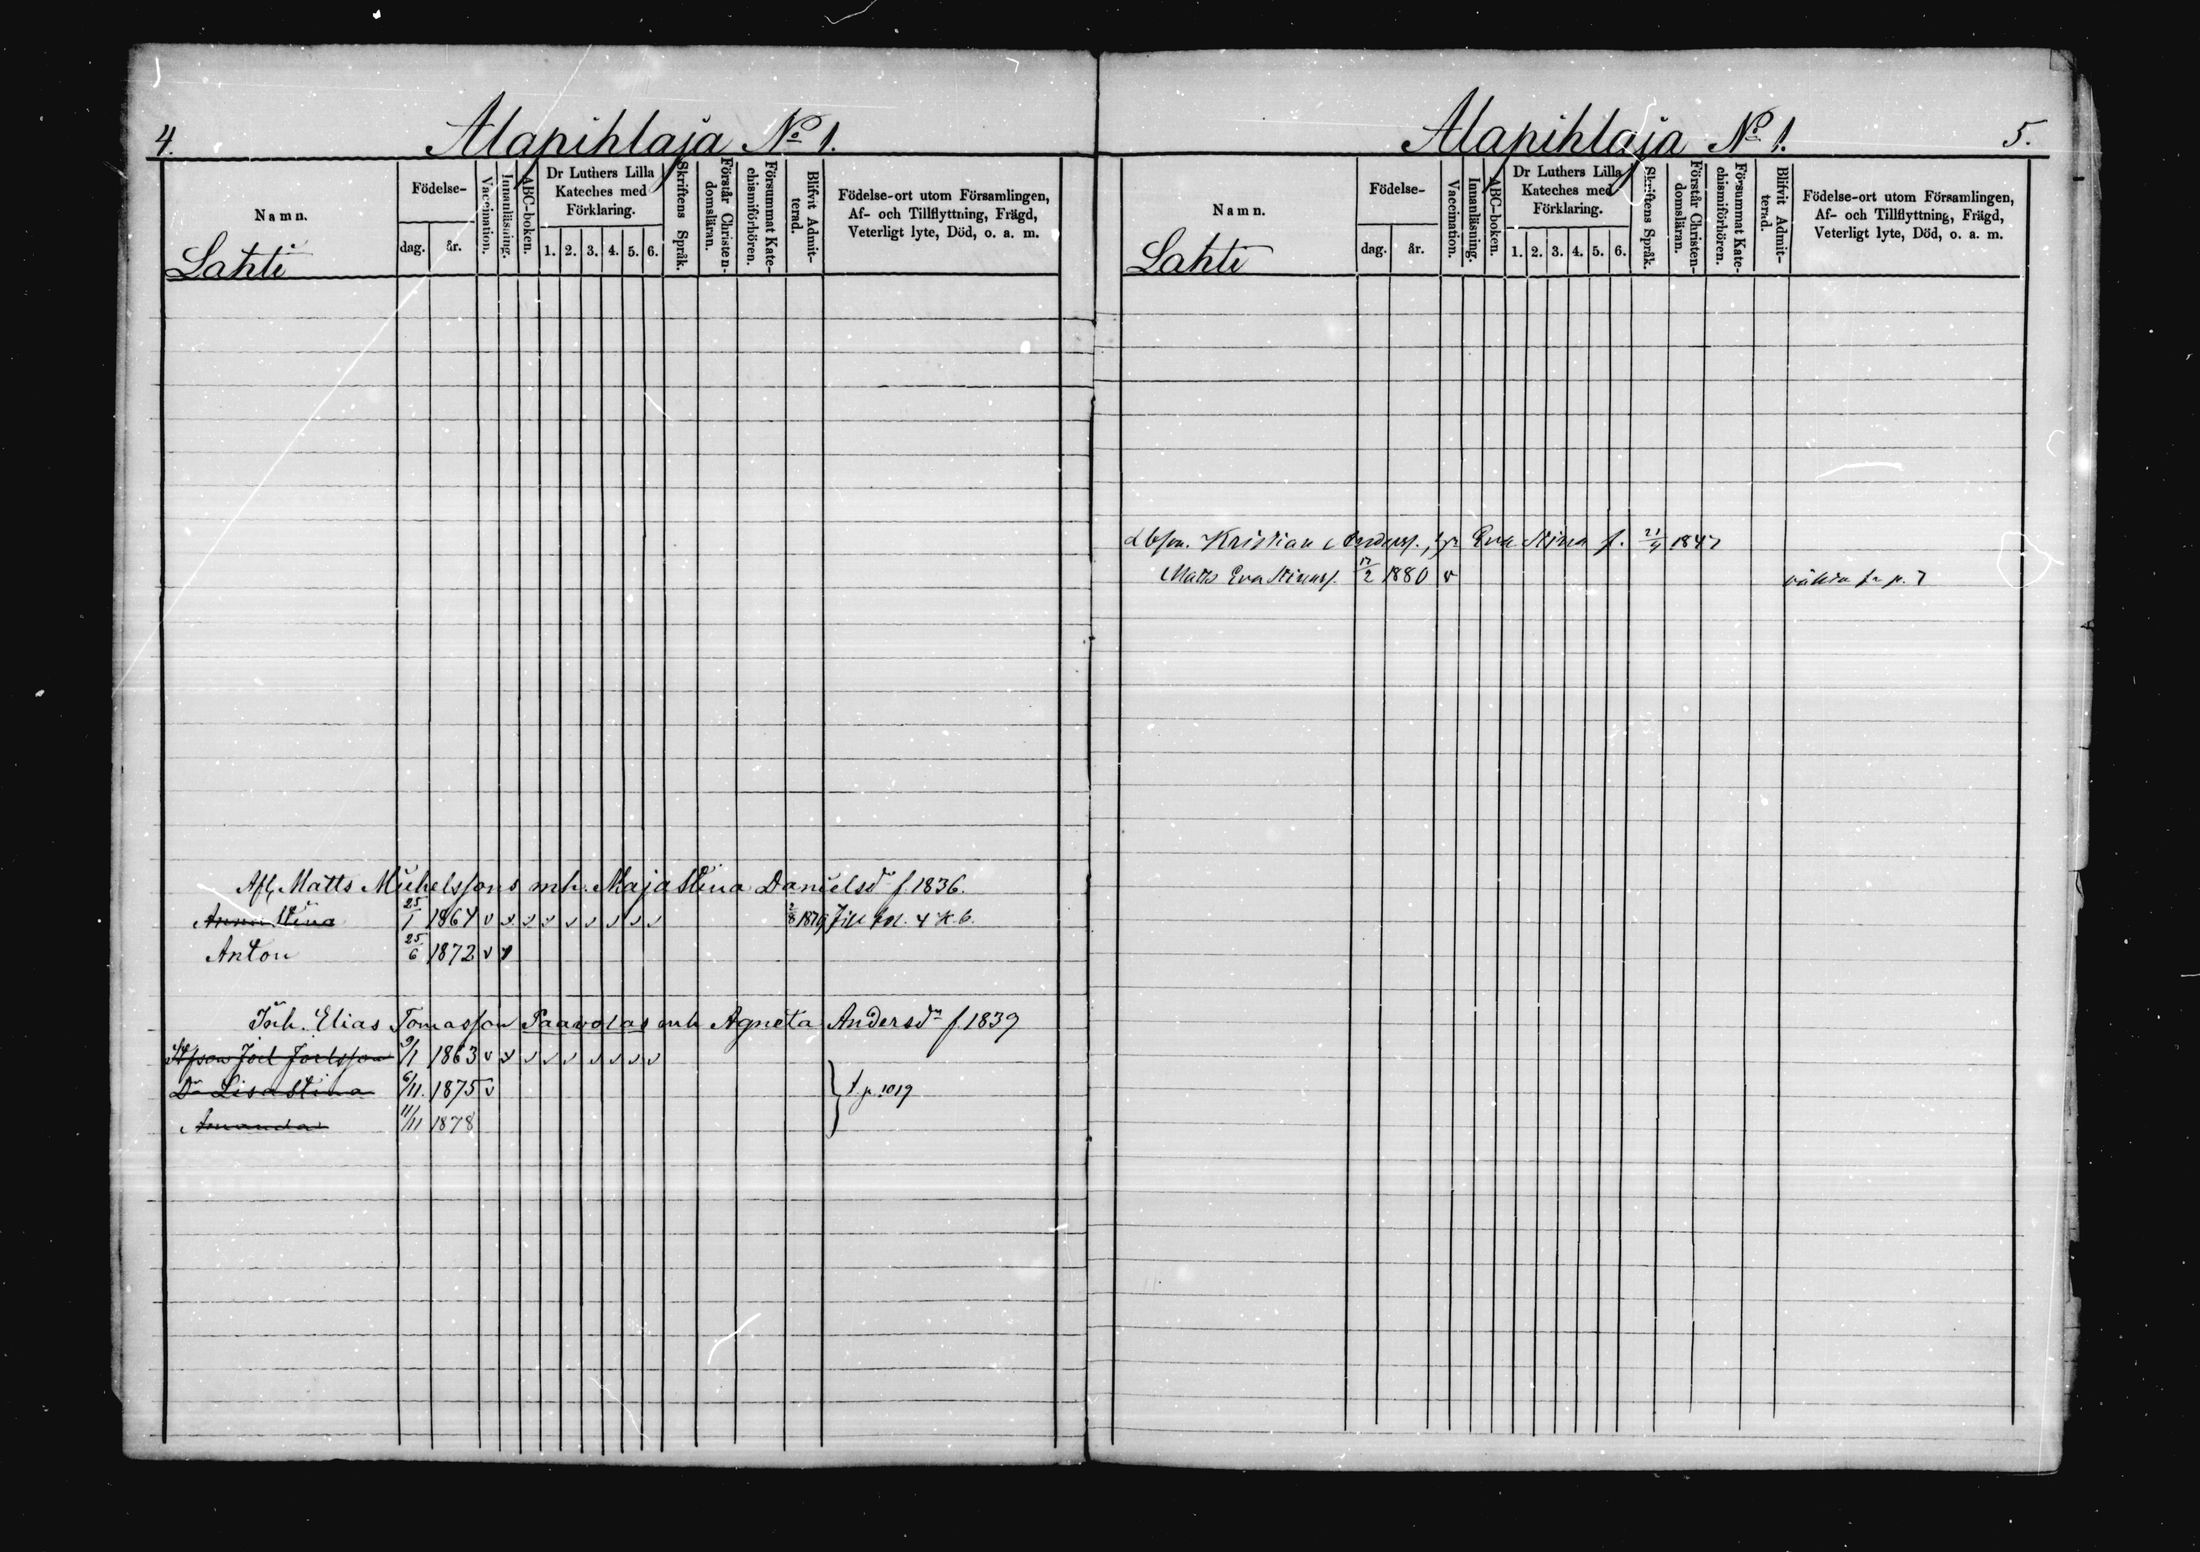 4.
Alapihlaja No 1.
Namn.
Lahti
Födelse-
dag.
år.
Vaccination.
Innanläsning.
ABC-boken.
Dr Luthers Lilla
Kateches med
Förklaring.
1. 2. 3. 4. 5. 6.
Skriftens Språk.
Förstår Christen-
domsläran.
Försummat Kate-
chismiförhören.
Blifvit Admit-
terad.
Födelse-ort utom Församlingen,
Af- och Tillflyttning, Frägd,
Veterligt lyte, Död, o. a. m.
Afl. Matts Michelssons enk. Maja Stina Danielsd:r f. 1836.
Anna Stina 25/1 1864 v v v v v v v v v 1879 Till
Anton 25/6 1872 v v
Inh. Elias Tomasson Paavolas enk Agneta Andersd:r f. 1839
Stfson Joel Joelsson 9/1 1863 v v v v v v v v v
Dr Lisa Stina 6/11. 1875 v
t. p. 1019
Amanda 11/11 1878
Alapihlaja No 1.
5.
Namn.
Lahti
Födelse-
dag.
år.
Vaccination.
Innanläsning.
ABC-boken.
Dr Luthers Lilla
Kateches med
Förklaring.
1. 2. 3. 4. 5. 6.
Skriftens Språk.
Förstår Christen-
domsläran.
Försummat Kate-
chismiförhören.
Blifvit Admit-
terad.
Födelse-ort utom Församlingen,
Af- och Tillflyttning, Frägd,
Veterligt lyte, Död, o. a. m.
Kristian Anderss. Eva Stina f. 21/4 1847
Matts Eva Stinas. 17/2 1880 v p. 7